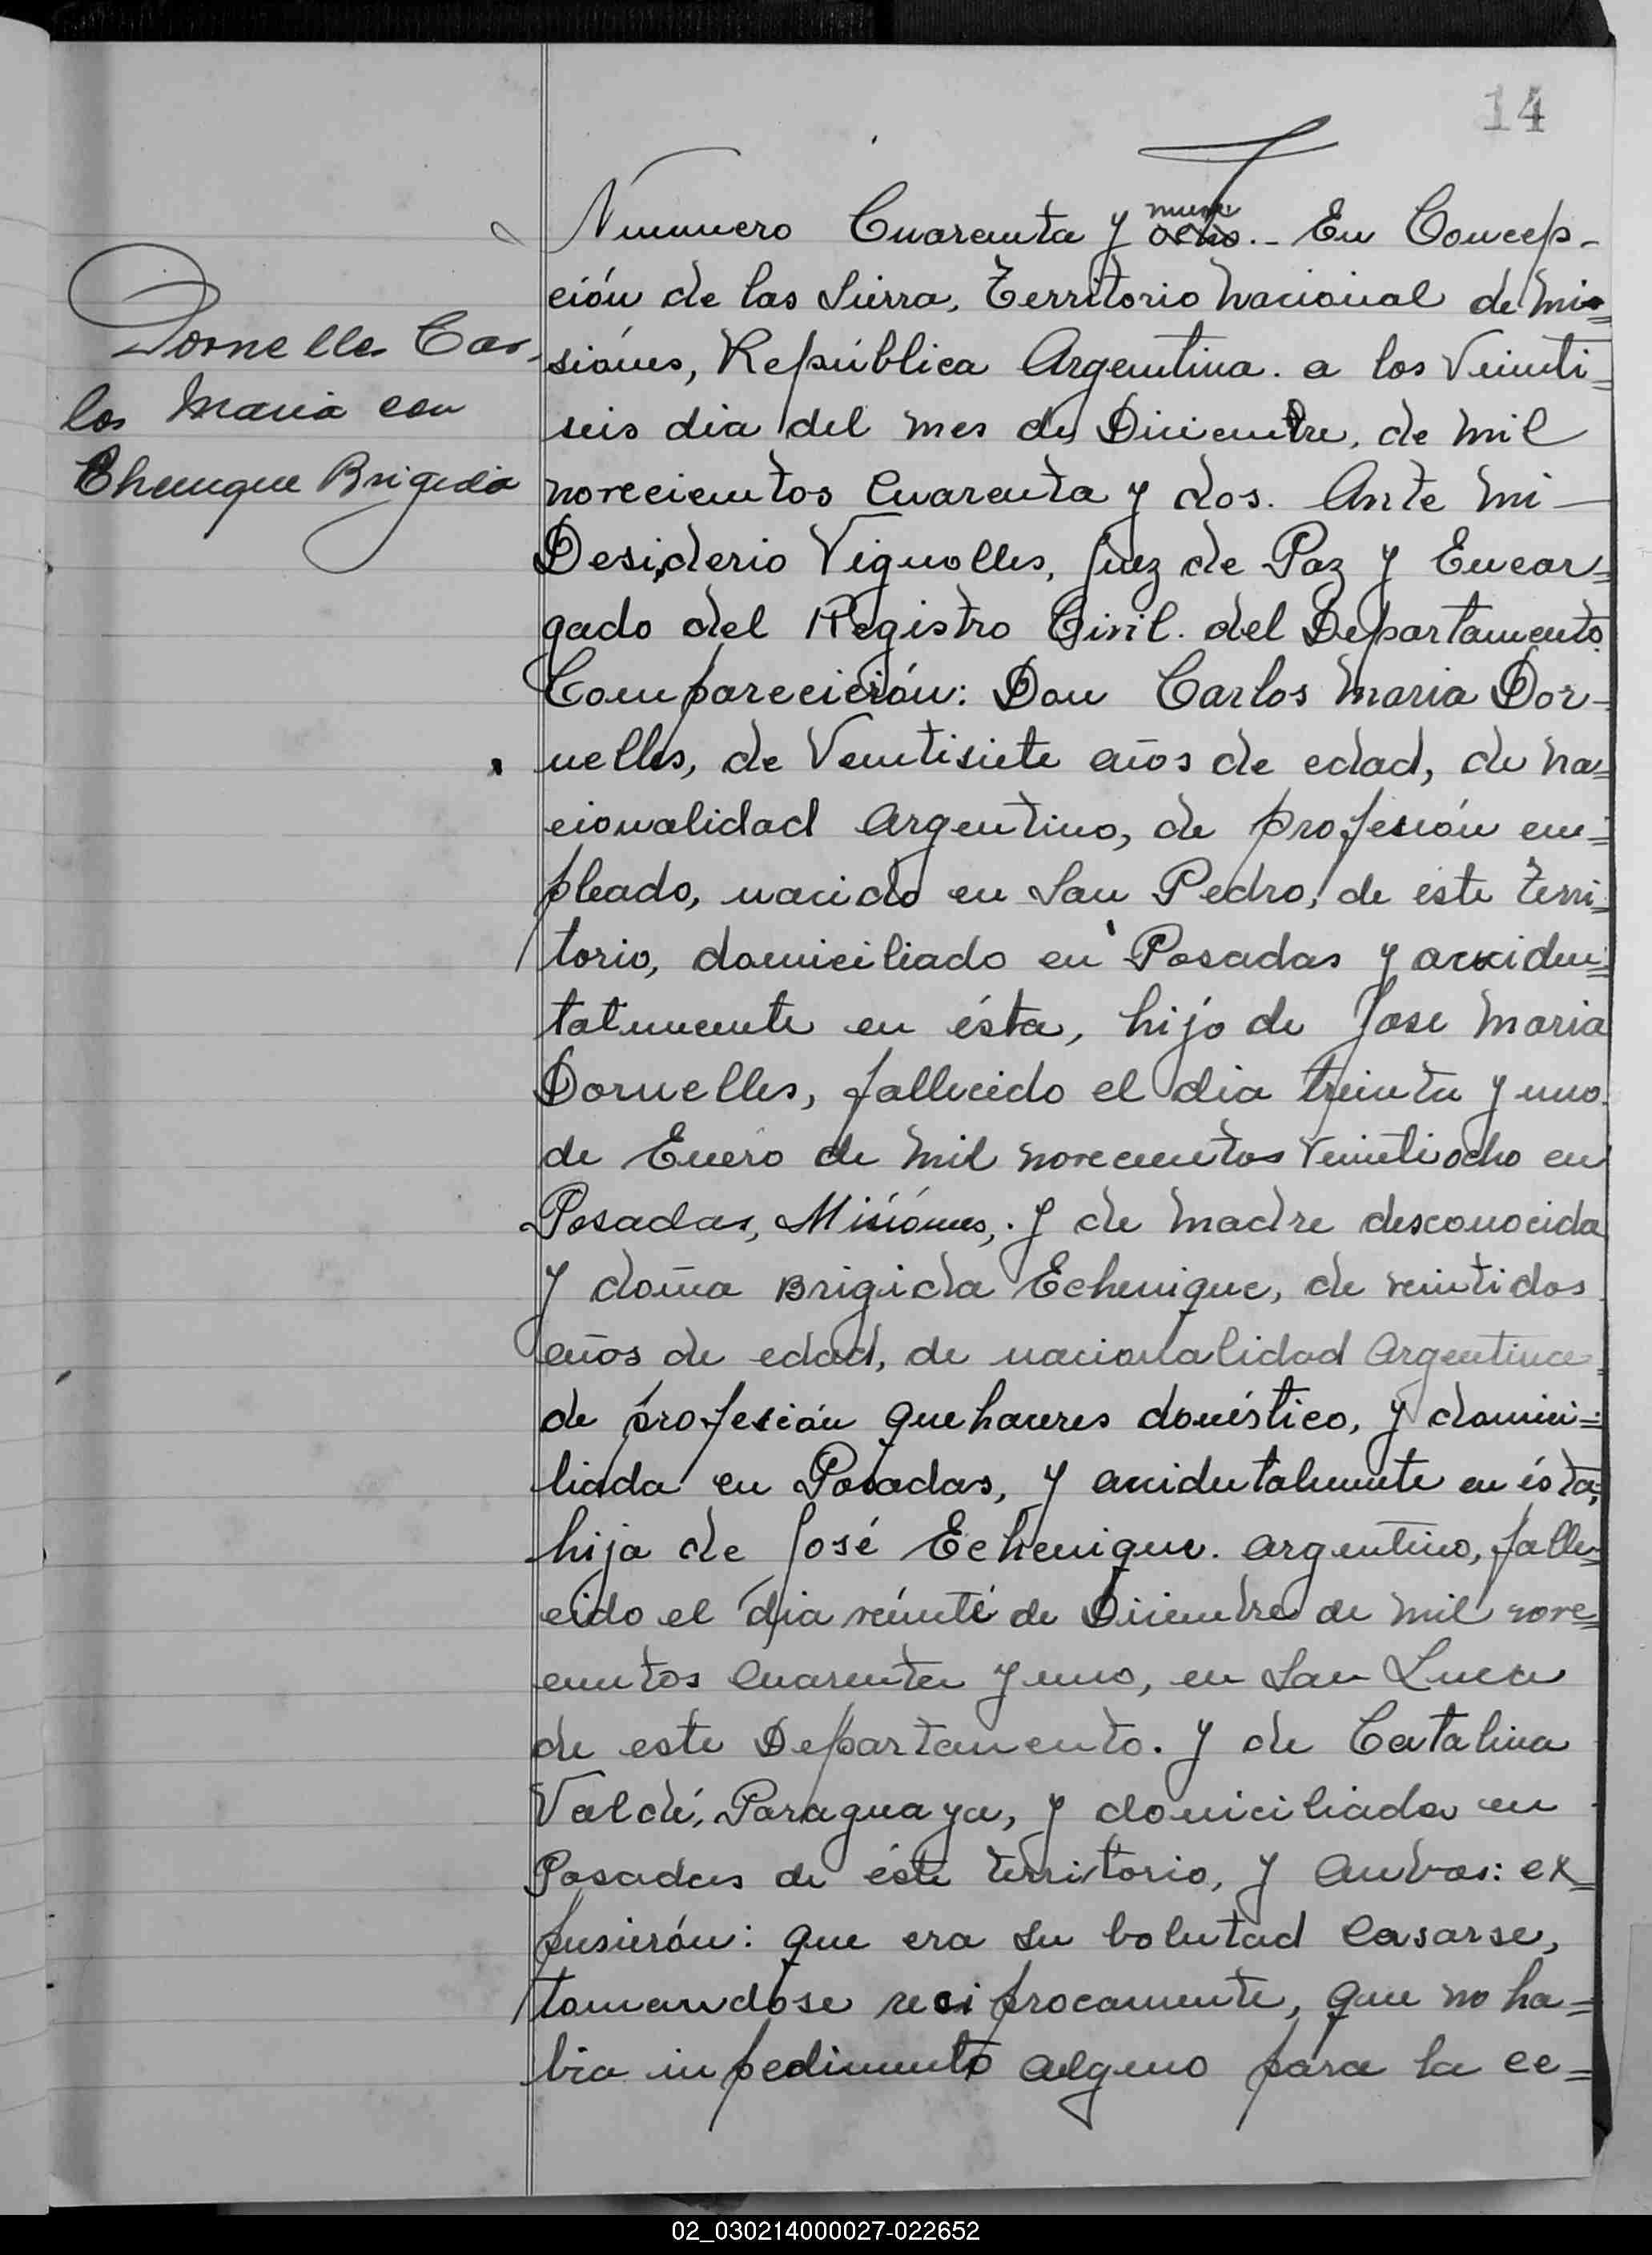 14
Nummero Cuarenta y nueve ocho.- En Concep-
ción de las Sierra, Territorio Nacional de Mi=
siónes, República Argentina. a los Veinti=
seis dia del mes de Diciembre, de mil
novecientos Cuarenta y dos. Ante mi—
Desiderio Vignolles, Juez de Paz y Encar=
gado del Registro Civil. del Departamento.
Comparecición: Don Carlos Maria Dor-
nelles, de Ventisiete años de edad, de na=
cionalidad Argentino, de profesión em=
pleado, nacido en San Pedro, de este Terri=
torio, domiciliado en Posadas y acciden=
talmente en ésta, hijo de Jose Maria
Dornelles, fallecido el dia treinta y uno
de Enero de mil novecientos Veintiocho en
Posadas, Misiónes,. y de madre desconocida
y doña Brigida Echenique, de veintidos
años de edad, de nacionalidad Argentina
de profesión quehaceres doméstico, y domici=
liada en Posadas, y accidentalmente en ésta,
hija de José Echenique. argentino, falle=
cido el dia veinte de Diciembre de mil nove=
cientos Cuarenta y uno, en San Lucas
de este Departamento. y de Catalina
Valdé, Paraguaya, y domiciliada en
Posadas de éste territorio, y ambos: ex=
pusierón: que era su boluntad Casarse,
tomandose reciprocamente, que no ha=
bia inpedimento alguno para la ce=
Dornelles Car-
los Maria con
Echenique Brigida
02_030214000027-022652